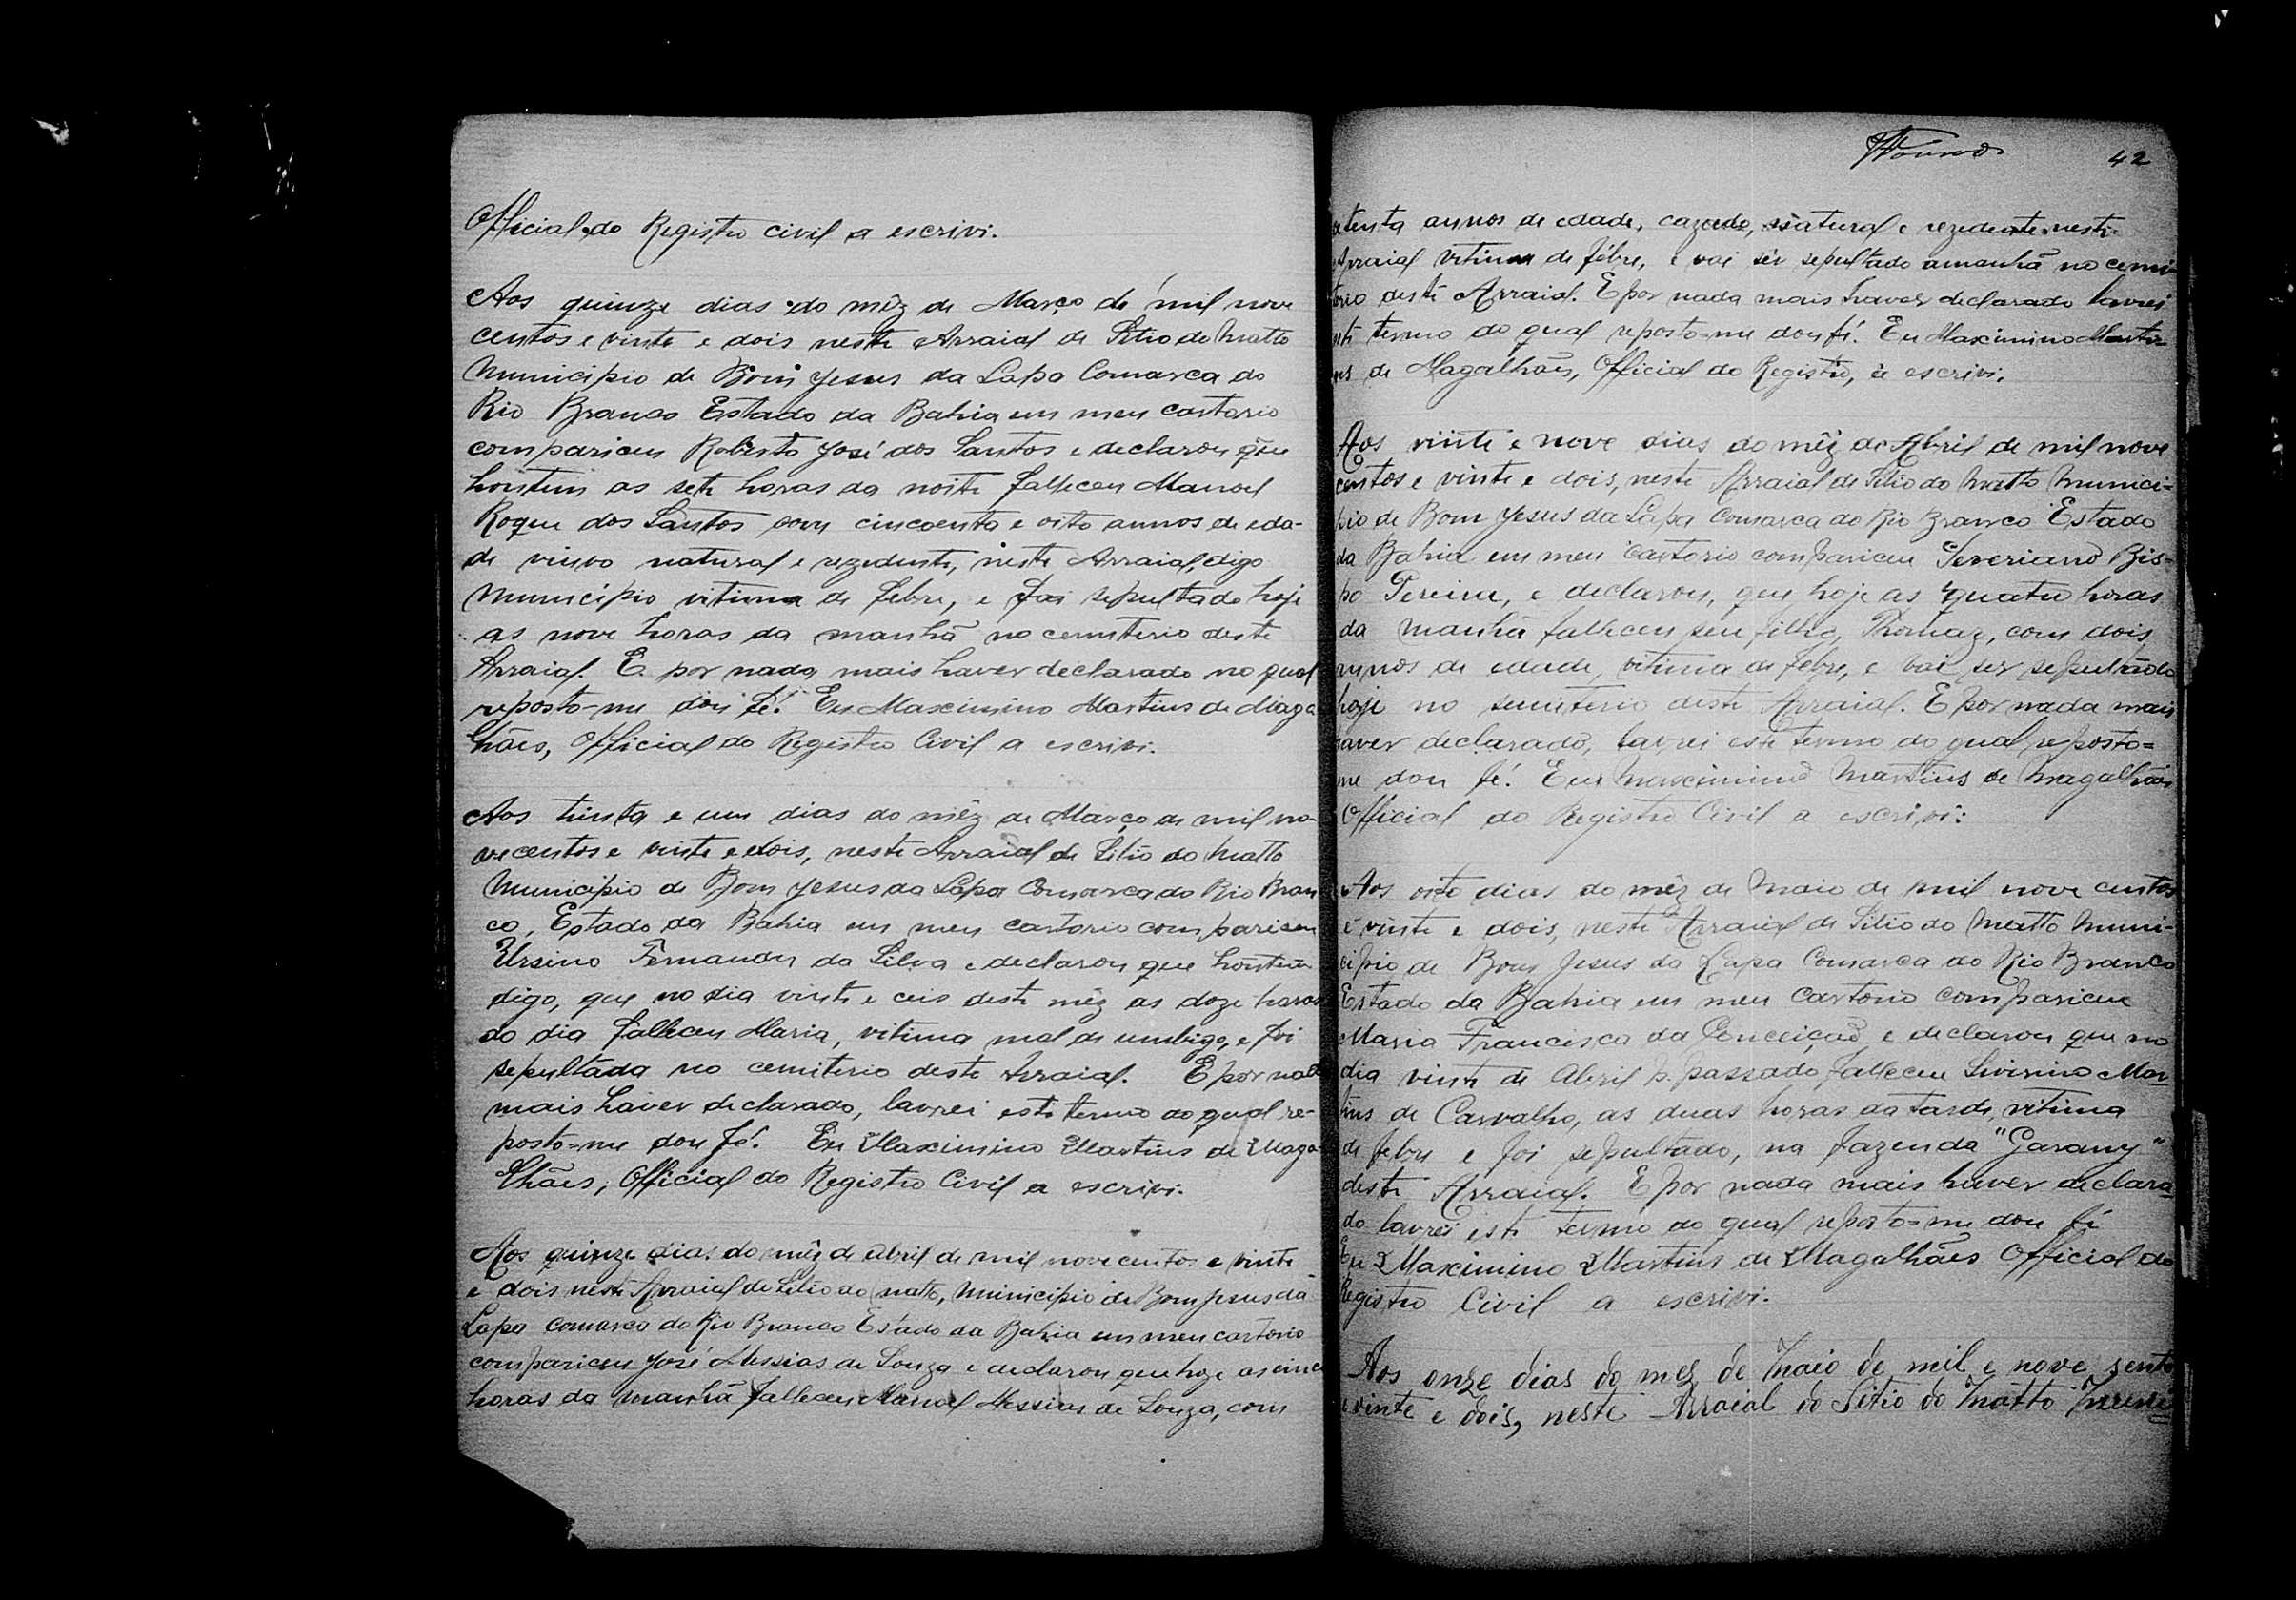 Official do Registro civil a escrivi.
Aos quinze dias do mêz de Março de mil nove
centos e vinte e dois neste Arraial de Sitio do Matto
Municipio de Bom Jesus da Lapa Comarca do
Rio Branco Estado da Bahia em meu cartorio
compariceu Roberto José dos Santos e declarou que
hontem as sete horas da noite falleceu Manoel
Roque dos Santos com cincoenta e oito annos de eda-
de viuvo natural e rezedente, neste Arraial, digo
Municipio vitima de febre, e foi sepultado hoje
as nove horas da manhã no cemiterio deste
Arraial. E por nada mais haver declarado no qual
reposto-me dou fé. Eu Maximino Martins de Maga
lhães, Official do Registro Civil a escrivi.
Aos trinta e um dias do mêz de Março de mil no-
vecentos e vinte e dois, neste Arraial de Sitio do Matto
Municipio de Bom Jesus da Lapa Comarca do Rio Bran
co, Estado da Bahia em meu cartorio compariceu
Ursino Fernandes da Silva e declarou que hontem
digo, que no dia vinte e ceis deste mêz as doze horas
do dia falleceu Maria, vitima mal de umbigo, e foi
sepultada no cemiterio deste Arraial. E por nada
mais haver declarado, lavrei este termo do qual re-
posto=me dou fé. Eu Maximino Martins de Maga
lhães, Official do Registro Civil a escrivi.
Aos quinze dias do mêz de Abril de mil nove centos e vinte
e dois neste Arraial de Sitio do Matto, Municipio de Bom Jesus da
Lapa comarca do Rio Branco Estado da Bahia em meu cartorio
compariceu José Messias de Souza e declarou que hoje as cinco
horas da manhã falleceu Manoel Messias de Souza, com
42
tenta annos de edade, cazado, natural e rezedente neste
Arraial vitima de fébre, e vai sér sepultado amanhã no cemi-
terio deste Arraial. E por nada mais haver declarado lavrei
este termo do qual reposto-me dou fé. Eu Maximino Marti-
nes de Magalhães, Official do Registro, a escrivi.
Aos vinte e nove dias do mêz de Abril de mil nove
centos e vinte e dois, neste Arraial de Sitio do Matto Munici-
pio de Bom Jesus da Lapa Comarca do Rio Branco Estado
da Bahia em meu cartorio compariceu Severiano Bis-
po Pereira, e declarou, que hoje as quatro horas
da manhã falleceu seu filho, Thomaz, com dois
annos de edade, vitima de febre, e vai ser sepultado
hoje no semiterio deste Arraial. E por nada mais
haver declarado, lavrei este termo do qual reposto=
me dou fé. Eu Maximino Martins de Magalhães
Official do Registro Civil a escrivi:
Aos oito dias do mêz de Maio de mil nove centos
e vinte e dois, neste Arraial de Sitio do Matto Muni-
cipio de Bom Jesus da Lapa Comarca do Rio Branco
Estado da Bahia em meu cartorio compariceu
Maria Francisca da Conceição e declarou que no
dia vinte de Abril p. passado falleceu Siverino Mar
tins de Carvalho, as duas horas da tarde, vitima
de febre e foi sepultado, na fazenda "Garany"
deste Arraial. E por nada mais haver declara
do lavrei este termo do qual reposto=me dou fé
Eu Maximino Martins de Magalhães Official do
Registro Civil a escrivi.
Aos onze dias do mez de Maio de mil e nove sento
e vinte e dois, neste Arraial do Sitio do Matto Muni